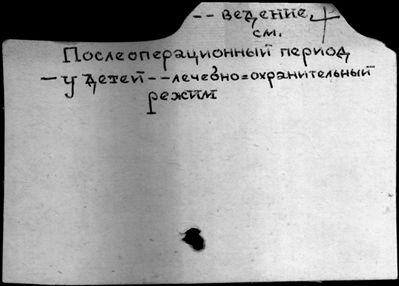 -- ведение,
см.
Послеоперационный период
- у детей -- лечебно=охранительный
режим